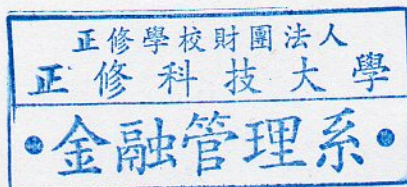 正修學校財團法人
正修科技大學
●金融管理系●